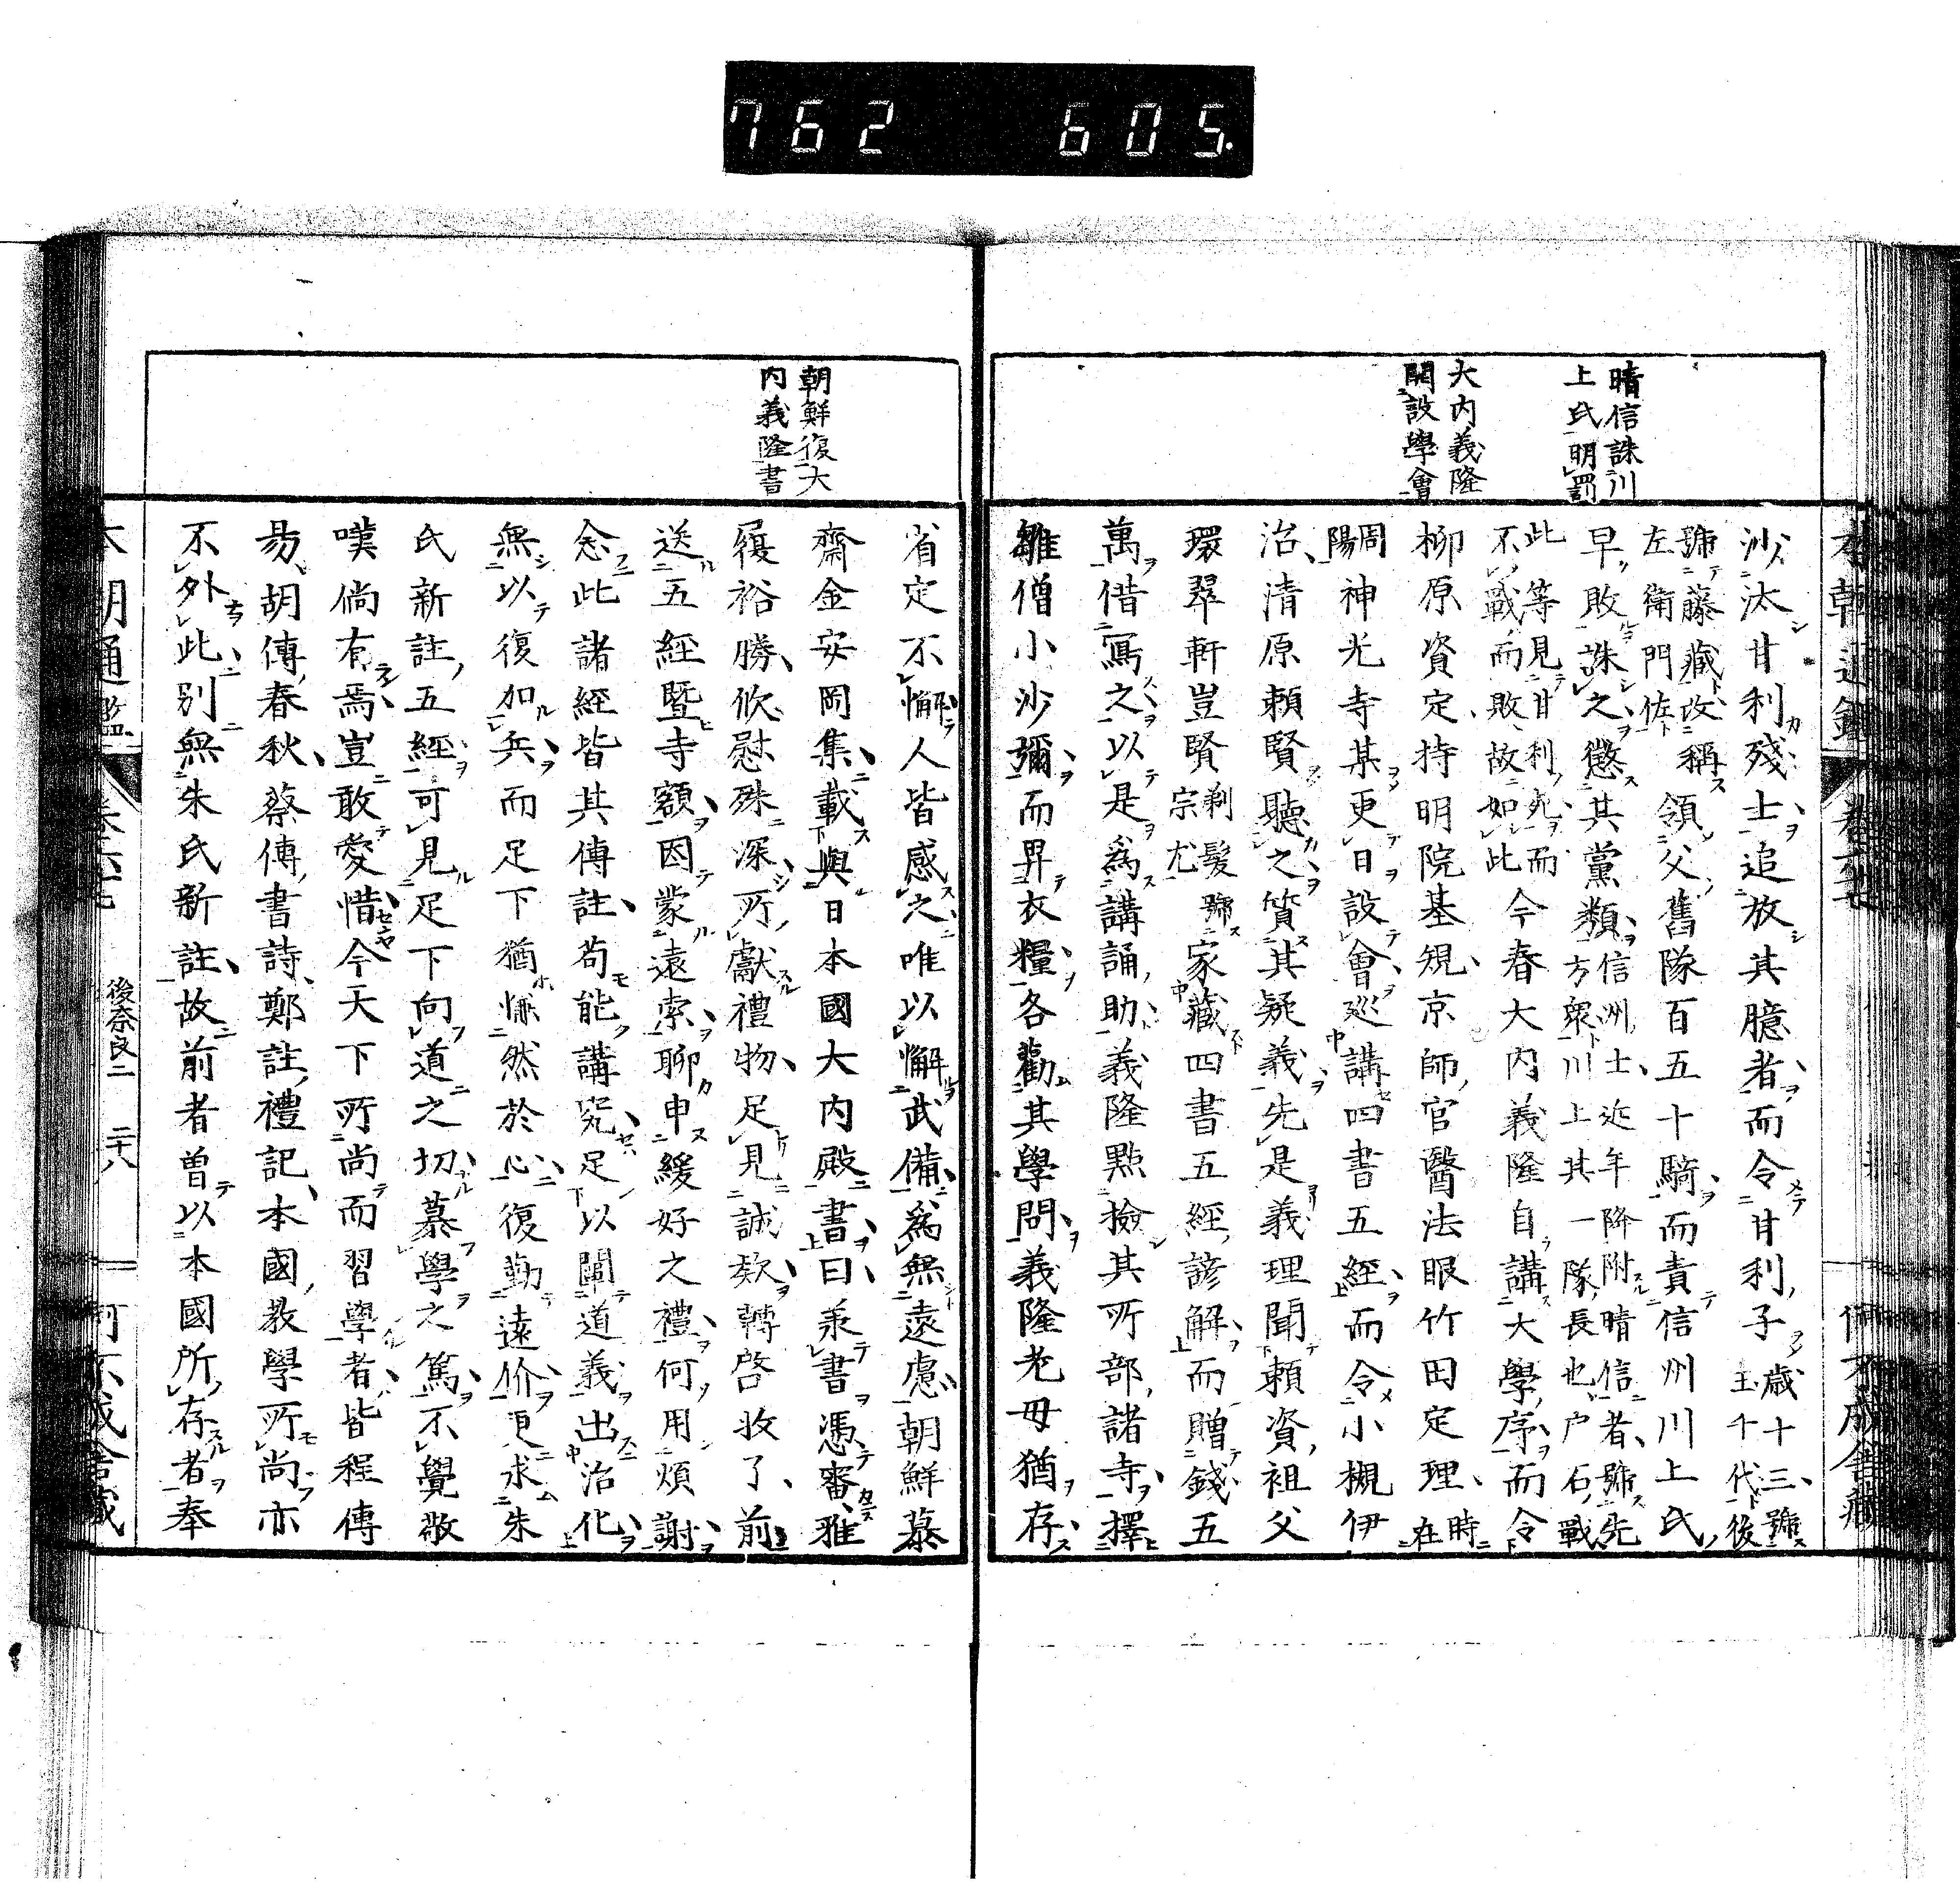 762 605.
晴信誅川
上氏明罰
大内義隆
開設學會
沙汰甘利殘士追放其臆者而令甘利子歳十三號
王千代後
號藤藏改稱領父舊隊百五十騎而責信州川上氏
左衛門佐
早敗誅之懲其黨類信州士近年降附晴信者號先
方衆川上其一隊長也戸石戰
此等見甘利死而
不戰而敗故如此今春大内義隆自講大學序而令
柳原資定持明院基規京師官醫法眼竹田定理時
在
周
陽神光寺某更日設會巡講四書五經而令小槻伊
治清原賴賢聽之質其疑義先是義理聞賴資祖父
環翠軒豈賢剃髮號
宗尤家藏四書五經諺解而贈錢五
萬借寫之以是爲講誦助義隆點撿其所部諸寺擇
雛僧小沙彌而畀衣糧各勸其學問義隆老母猶存
朝鮮復大
内義隆書
省定不懈人皆感之唯以懈武備爲無遠慮朝鮮慕
齋金安岡集載與日本國大内殿書曰承書憑審雅
履裕勝欣慰殊深所獻禮物足見誠欵轉啓收了前
送五經暨寺額因蒙遠索聊申緩好之禮何用煩謝
念此諸經皆其傳註苟能講究足以闡道義出治化
無以復加矣而足下猶慊然於心復勤遠价更求朱
氏新註五經可見足下向道之切慕學之篤不覺敬
嘆倘有焉豈敢愛惜今天下所尚而習學者皆程傳
易胡傳春秋蔡傳書詩鄭註禮記本國教學所尚亦
不外此別無朱氏新註故前者曾以本國所存者奉
本朝通鑑
後奈良二 二十八